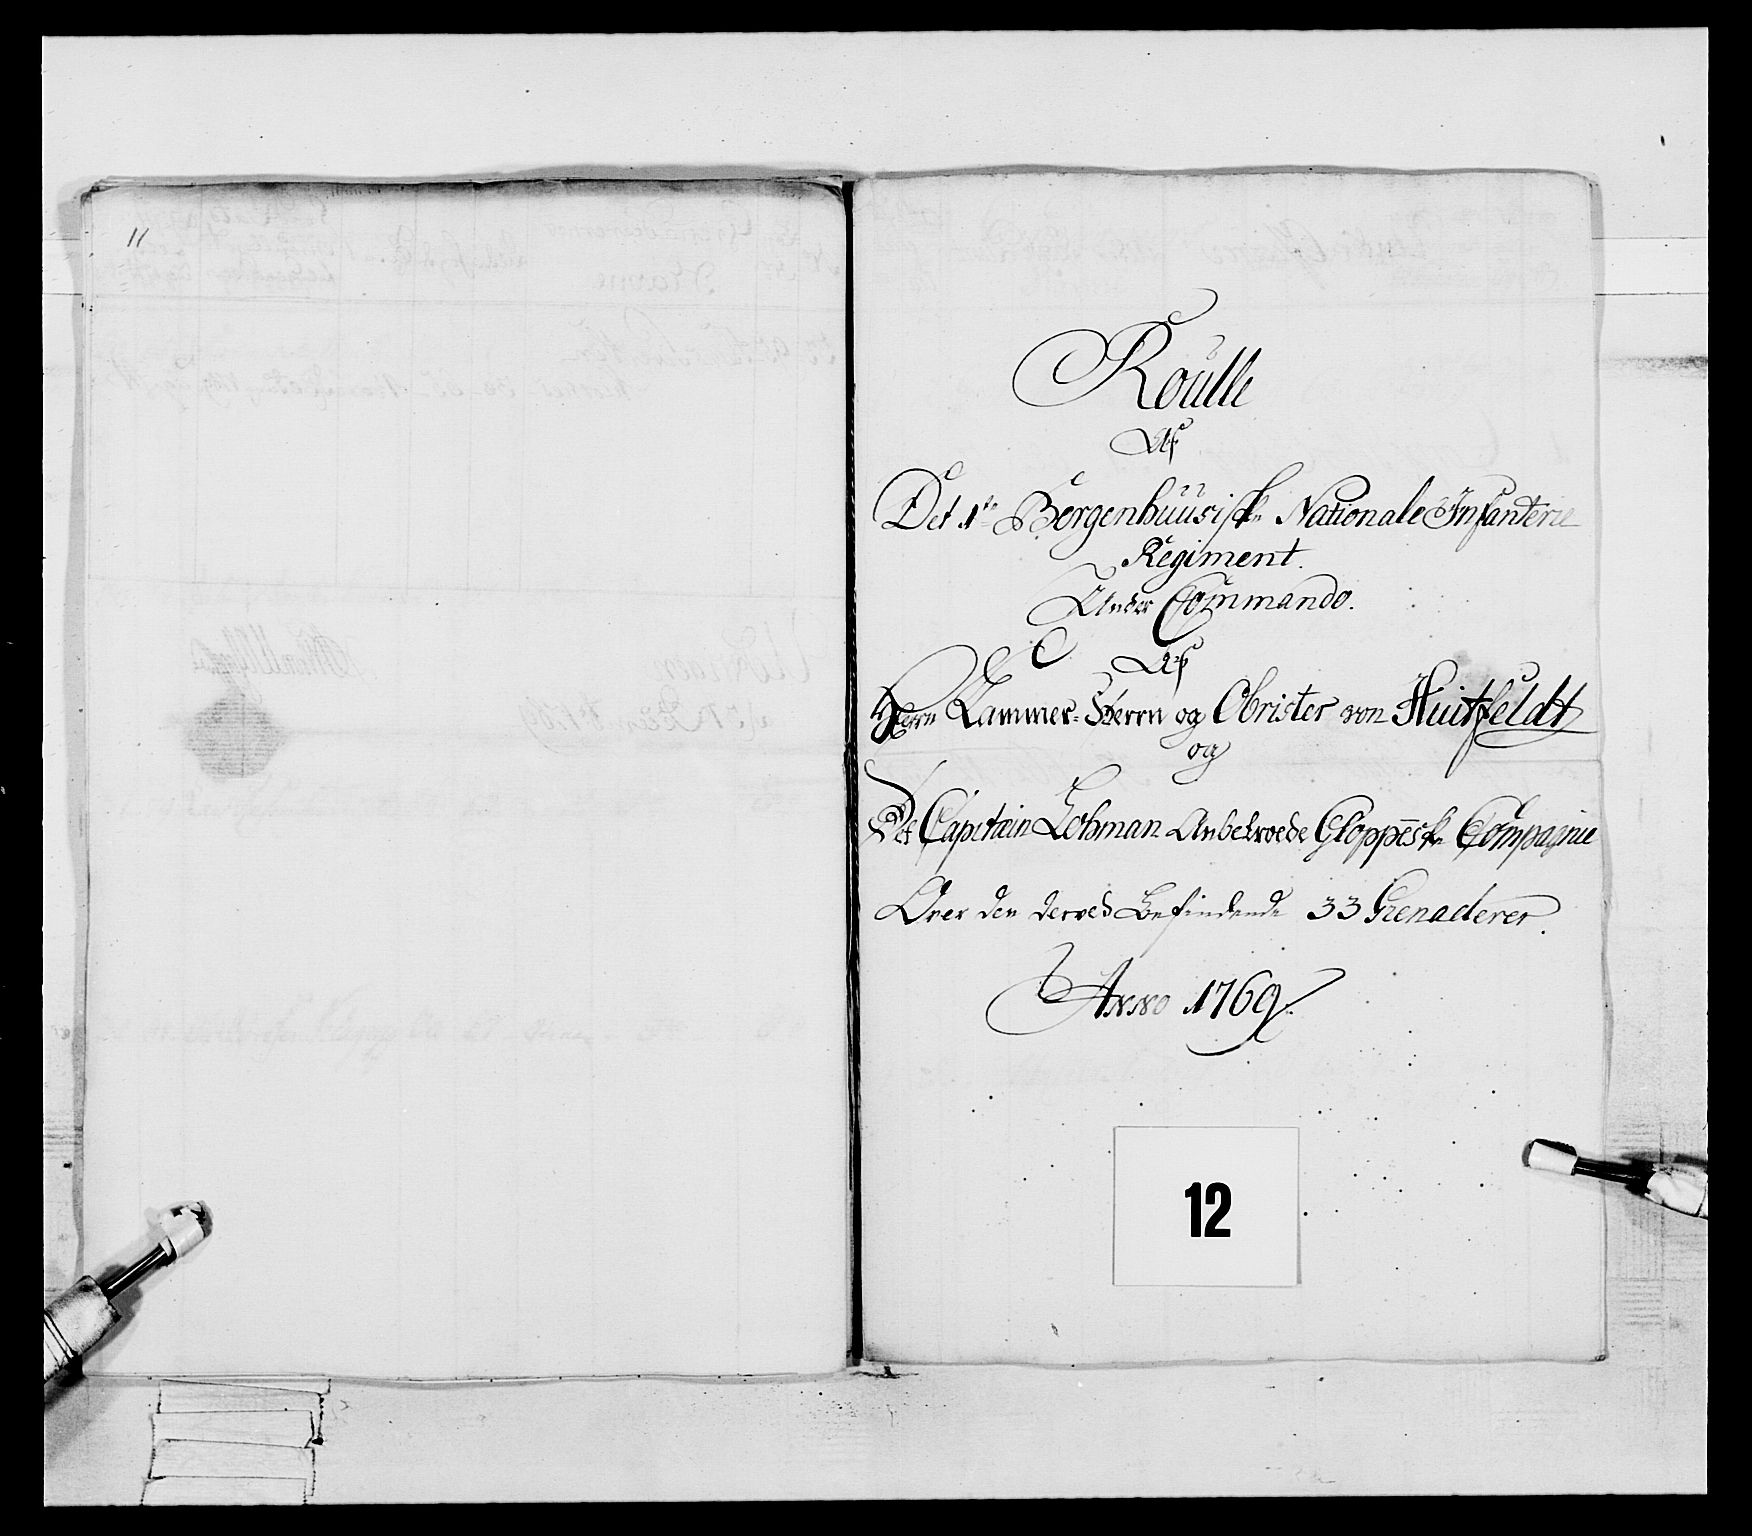 11
Roulle
Af
Det 1te Bergenhuusiske Nationale Infanterie
Regiment.
Under Commando.
Af
Herrn Kammer-Herrn og Obrister von Huitfeldt
og
Det Capitain Lohman Anbetroede Gloppeske Compagnie
Over den derved Befindende 33 Grenaderer.
Anno 1769.
12